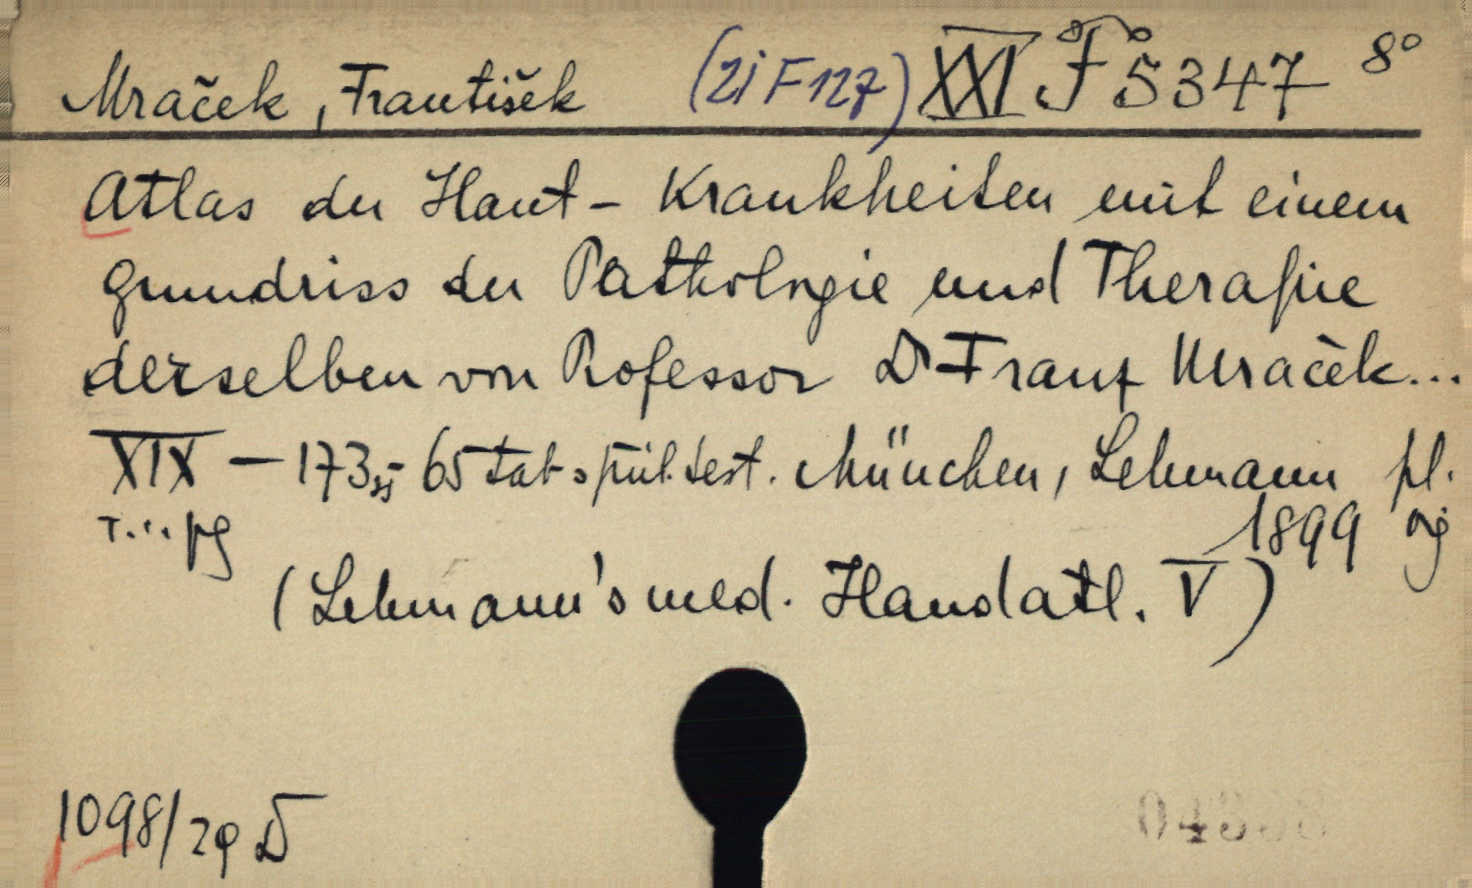 Mraček, František (21 F 127) XXI F 5347 8°
Atlas der Haut-Krankheiten mit einem
Grundriss der Pathologie und Therapie
derselben von Professor Dr Franz Mraček...
XIX – 173 65 tab München, Lehmann pl.
1899
(Lehmann's med. Handatl. V)
1098/29 D